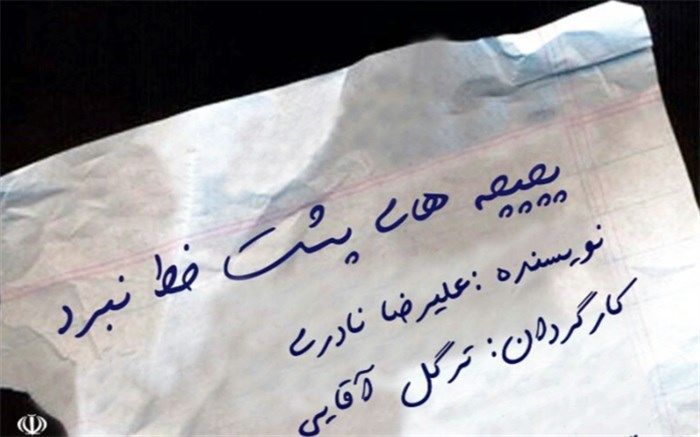 پچپچه های پشت خط نبرد
نویسنده: علیرضا نادری
کارگردان: ترگل آقایی